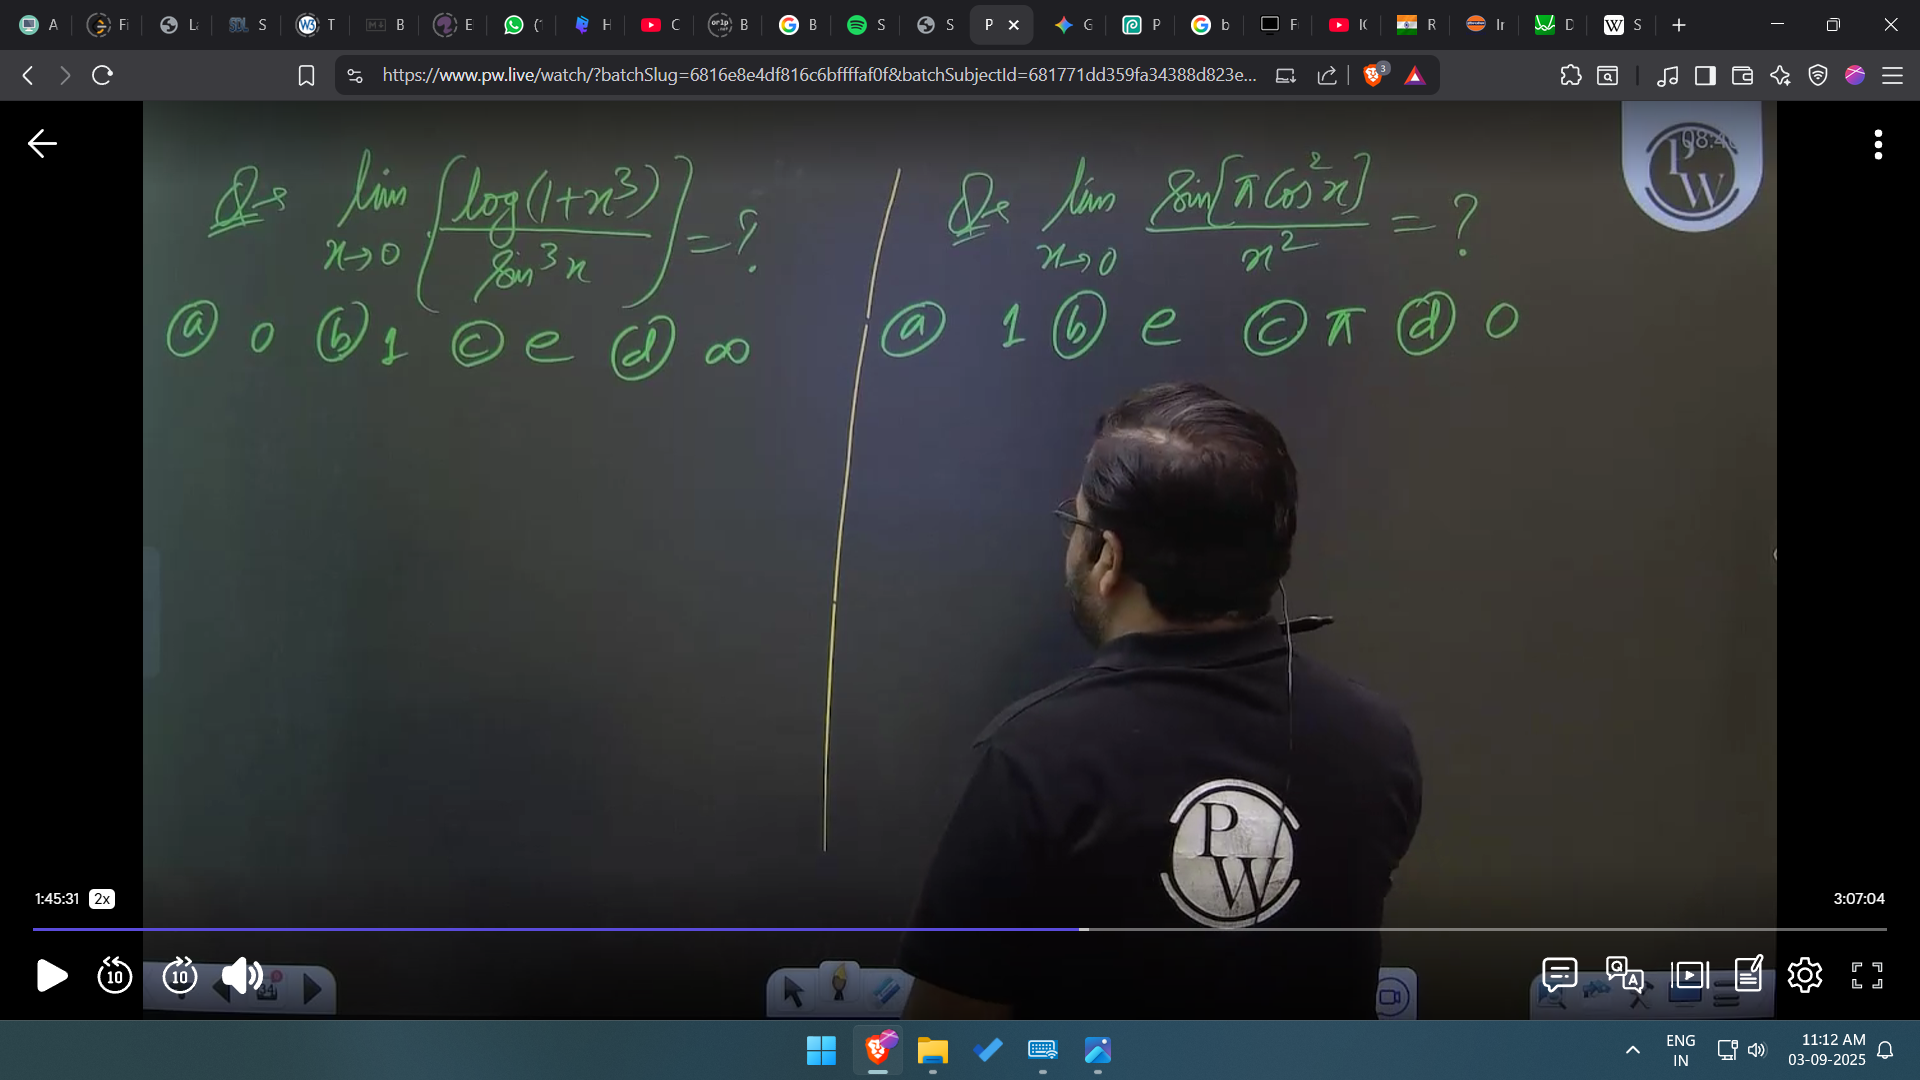 A Fi L SDL S W3 T M↓ B E (1 H C B B S S P × G P b F IC R Ir D W S +
https://www.pw.live/watch/?batchSlug=6816e8e4df816c6bffffaf0f&batchSubjectId=681771dd359fa34388d823e... 3
08:4
PW
Q→ lim x→0 (log(1+x³)/sin³x) = ?
ⓐ 0 ⓑ 1 ⓒ e ⓓ ∞
Q→ lim x→0 sin[π cos²x]/x² = ?
ⓐ 1 ⓑ e ⓒ π ⓓ 0
PW
1:45:31 2x 3:07:04
10 10
34
ENG
IN
11:12 AM
03-09-2025